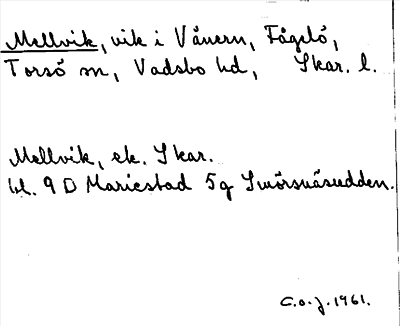 Mellvik, vik i Vänern, Fågelö,
Torsö sn, Vadsbo hd, Skar. l.
Mellvik, ek. Skar.
bl. 9 D Mariestad 5g Smörsnäsudden.
C.o.j. 1961.